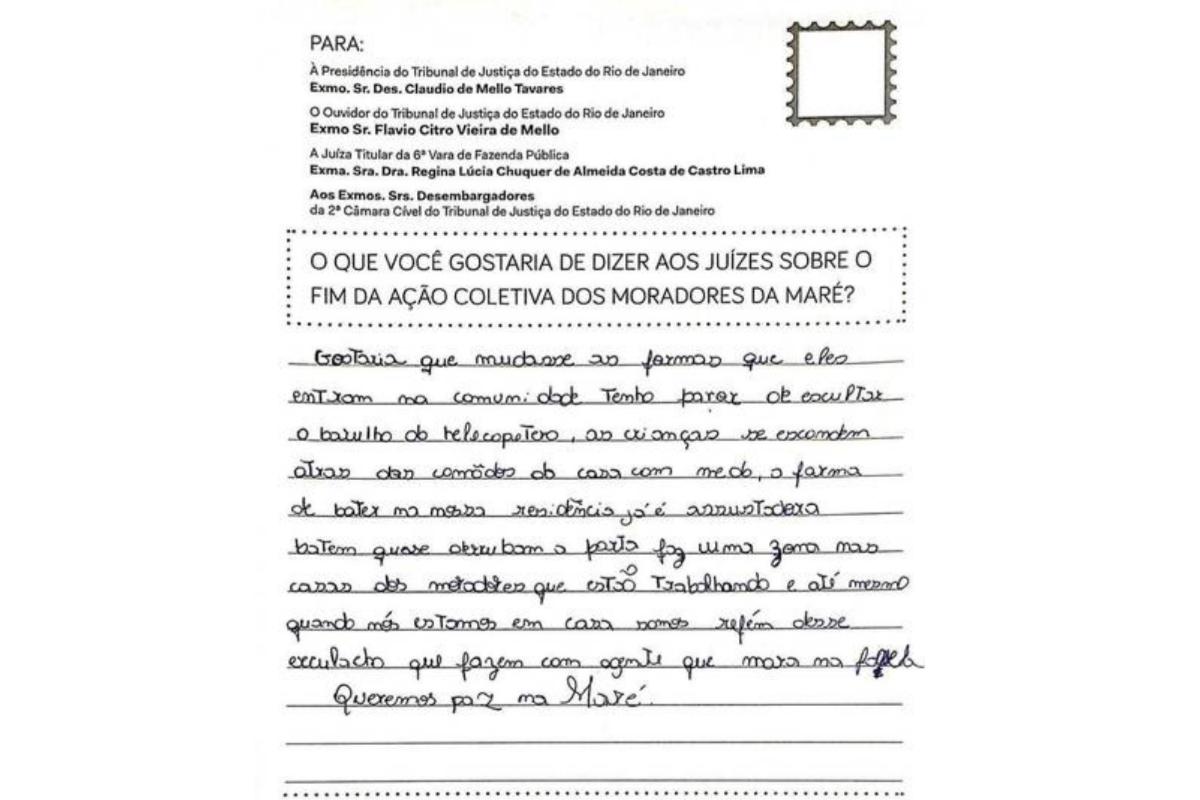 PARA:
À Presidência do Tribunal de Justiça do Estado do Rio de Janeiro
Exmo. Sr. Des. Claudio de Mello Tavares
O Ouvidor do Tribunal de Justiça do Estado do Rio de Janeiro
Exmo Sr. Flavio Citro Vieira de Mello
A Juíza Titular da 6ª Vara de Fazenda Pública
Exma. Sra. Dra. Regina Lúcia Chuquer de Almeida Costa de Castro Lima
Aos Exmos. Srs. Desembargadores
da 2ª Câmara Cível do Tribunal de Justiça do Estado do Rio de Janeiro
O QUE VOCÊ GOSTARIA DE DIZER AOS JUÍZES SOBRE O
FIM DA AÇÃO COLETIVA DOS MORADORES DA MARÉ?
Gostaria que mudasse as formas que eles
entram na comunidade Tenho parar de escultar
o barulho do helecopetero, as crianças se escondem
atras das comôdos da casa com medo, a forma
de bater na nossa residência já é assustadora
batem quase derrubam a porta faz uma zona nas
casas dos moradores que estão Trabalhando e até mesmo
quando nós estamos em casa somos refém desse
esculacho que fazem com agente que mora na favela
Queremos paz na Maré.